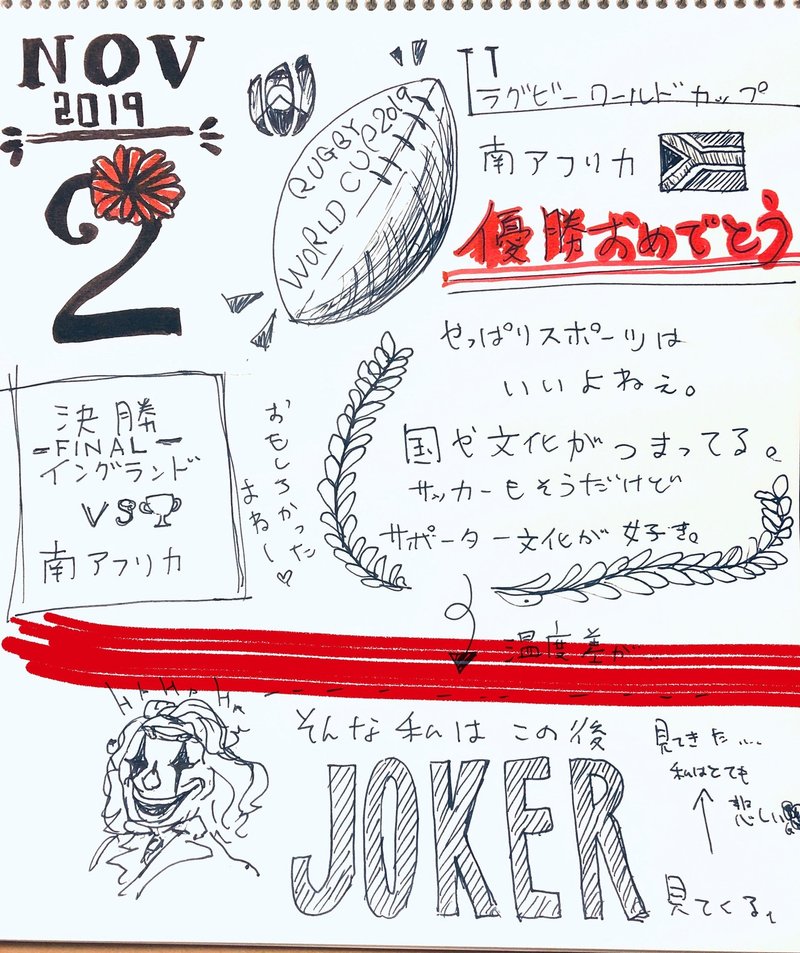 NOV
2019
2
RUGBY
WORLD CUP 2019
ラグビーワールドカップ
南アフリカ
優勝おめでとう
やっぱりスポーツは
いいよねぇ。
国ゼ文化がつまってる。
サッカーもそうだけど
サポーター文化が好き。
決勝
-FINAL-
イングランド
VS
南アフリカ
おもしろかった
よねー♡
温度差が...
HAHAHA
そんな私はこの後
JOKER
見てくる。
見てきた....
私はとても
悲しい